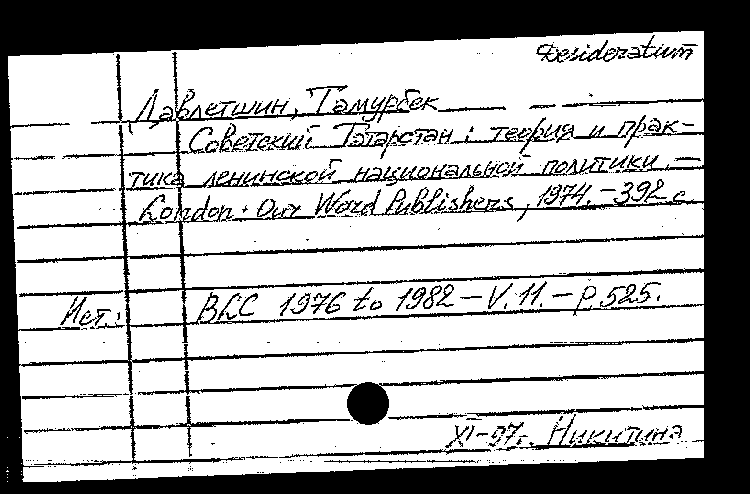 Desideratum
Давлетшин, Тамурбек
Советский Татарстан: теория и прак-
тика ленинской национальной политики. —
London: Our Word Publishers, 1974. — 392 с.
Ист.: BLC 1976 to 1982 — V. 11. — P. 525.
XI-97г. Никитина